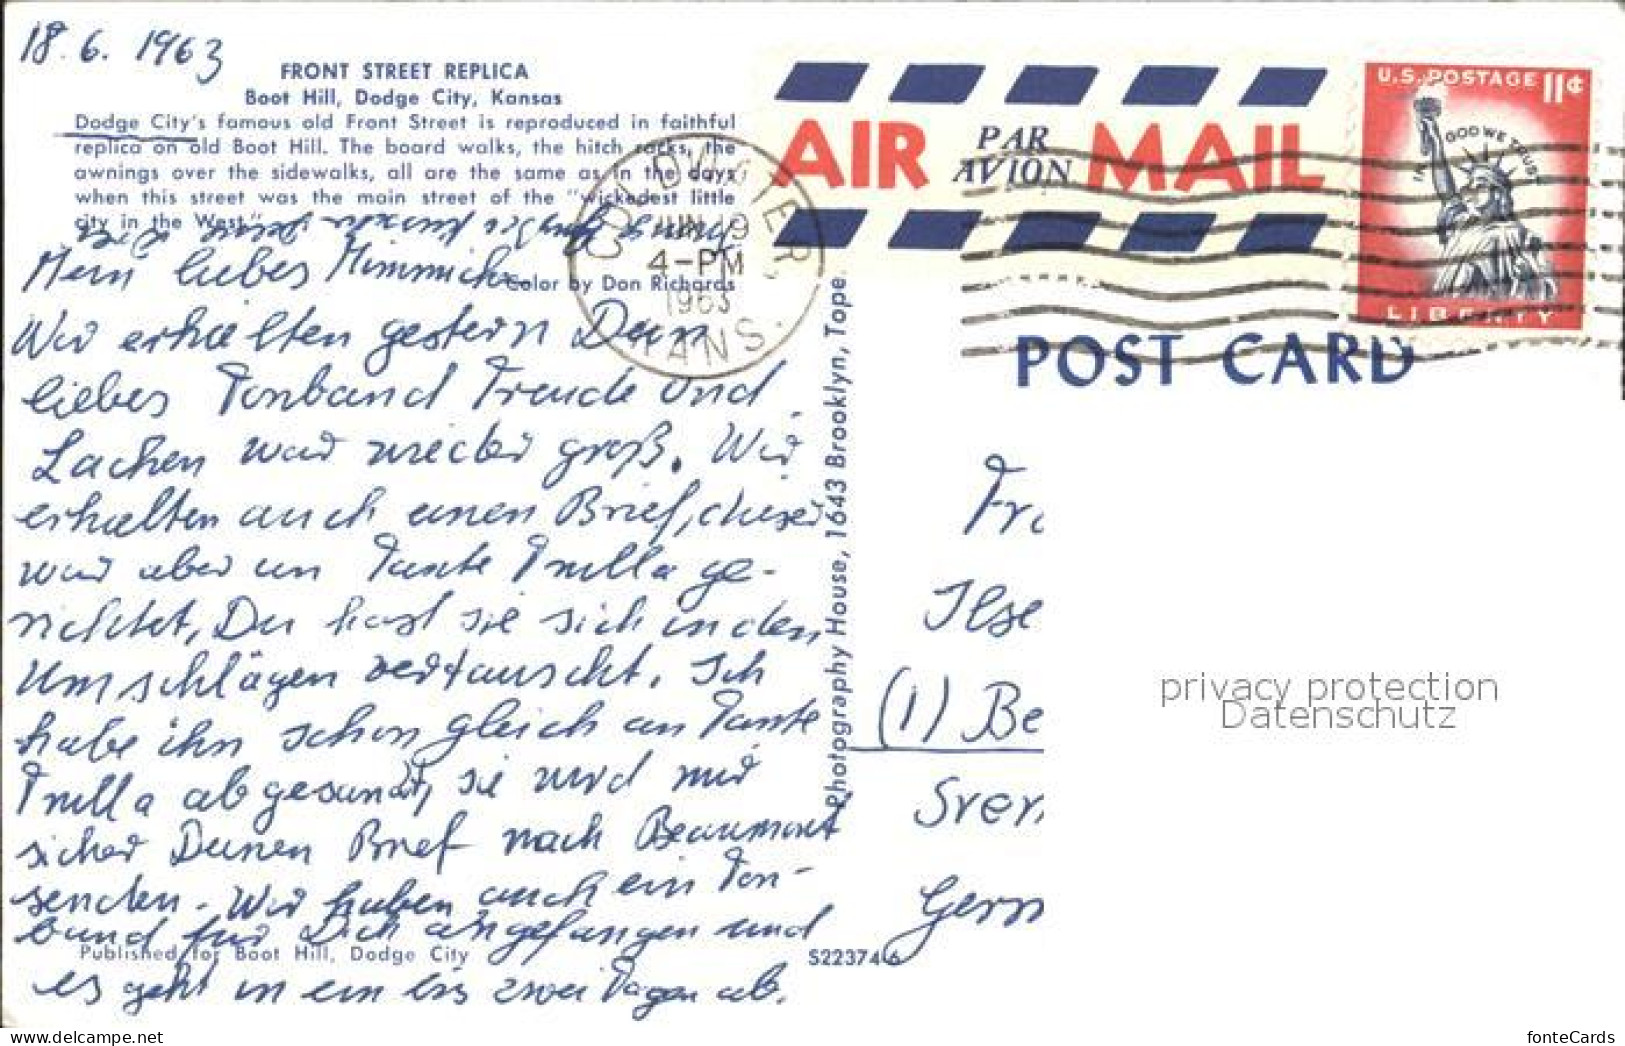 18. 6. 1963
FRONT STREET REPLICA
Boot Hill, Dodge City, Kansas
Dodge City's famous old Front Street is reproduced in faithful
replica on old Boot Hill. The board walks, the hitch racks, the
awnings over the sidewalks, all are the same as in the days
when this street was the main street of the "wickedest little
city in the West."
Color by Don Richards
Mein liebes Mimmich
Wir erhielten gestern Dein
liebes Tonband Freude und
Lachen war wieder groß. Wir
erhielten auch einen Brief, dieser
war aber an Tante Trulla ge-
richtet, Du hast sie sich in den
Umschlägen vertauscht. Ich
habe ihn schon gleich an Tante
Trulla abgesandt, sie wird mir
sicher Deinen Brief nach Beaumont
senden. Wir haben auch ein Ton-
band für Dich angefangen und
es geht in ein bis zwei Tagen ab.
Published for Boot Hill, Dodge City
S22374-6
Photography House, 1643 Brooklyn, Tope
COLDWATER,
JUN 19
4-PM
1963
KANS.
AIR PAR AVION MAIL
U.S. POSTAGE 11¢
IN GOD WE TRUST
LIBERTY
POST CARD
Fra
Ilse
(1) Be
Germ
privacy protection
Datenschutz
fonteCards